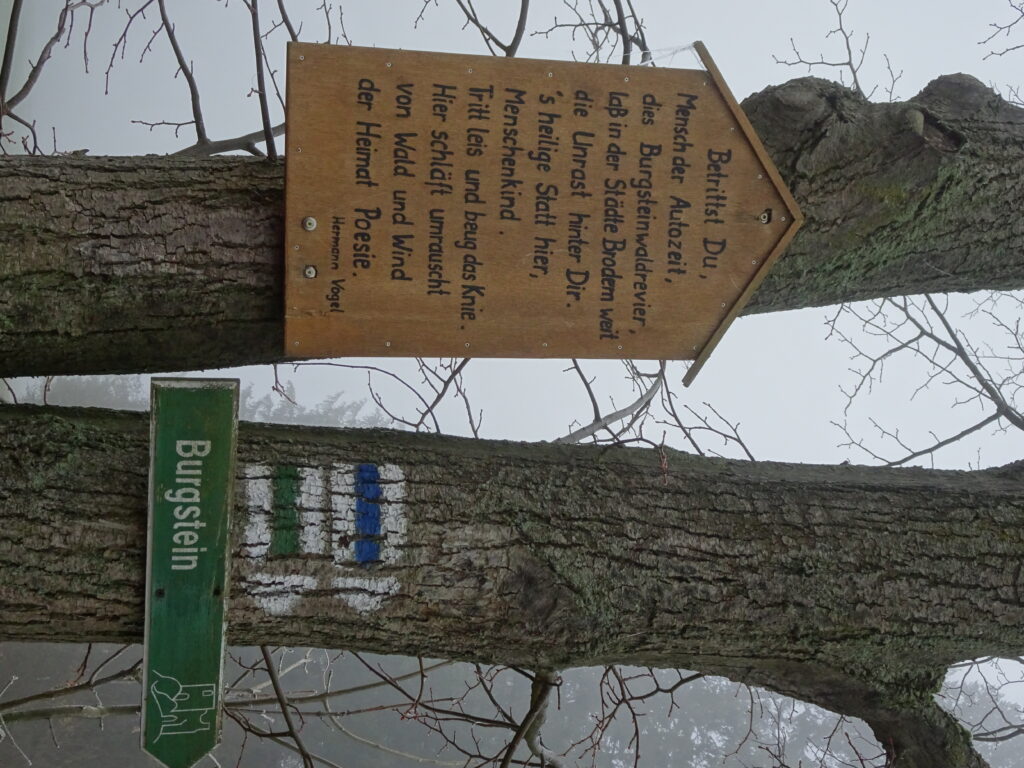 Betrittst Du,
Mensch der Autozeit,
dies Burgsteinwaldrevier,
laß in der Städte Brodem weit
die Unrast hinter Dir.
's heilige Statt hier,
Menschenkind.
Tritt leis und beug das Knie.
Hier schläft umrauscht
von Wald und Wind
der Heimat Poesie.
Hermann Vogel
Burgstein